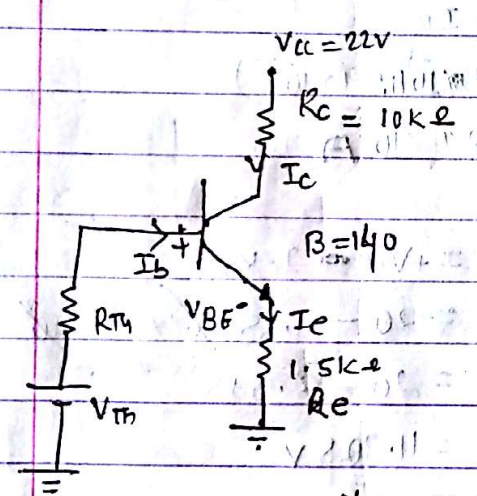 Vcc = 22V
Rc = 10KΩ
Ic
B = 140
Ib
+
VBE -
RTh
Ie
1.5KΩ
Re
VTh